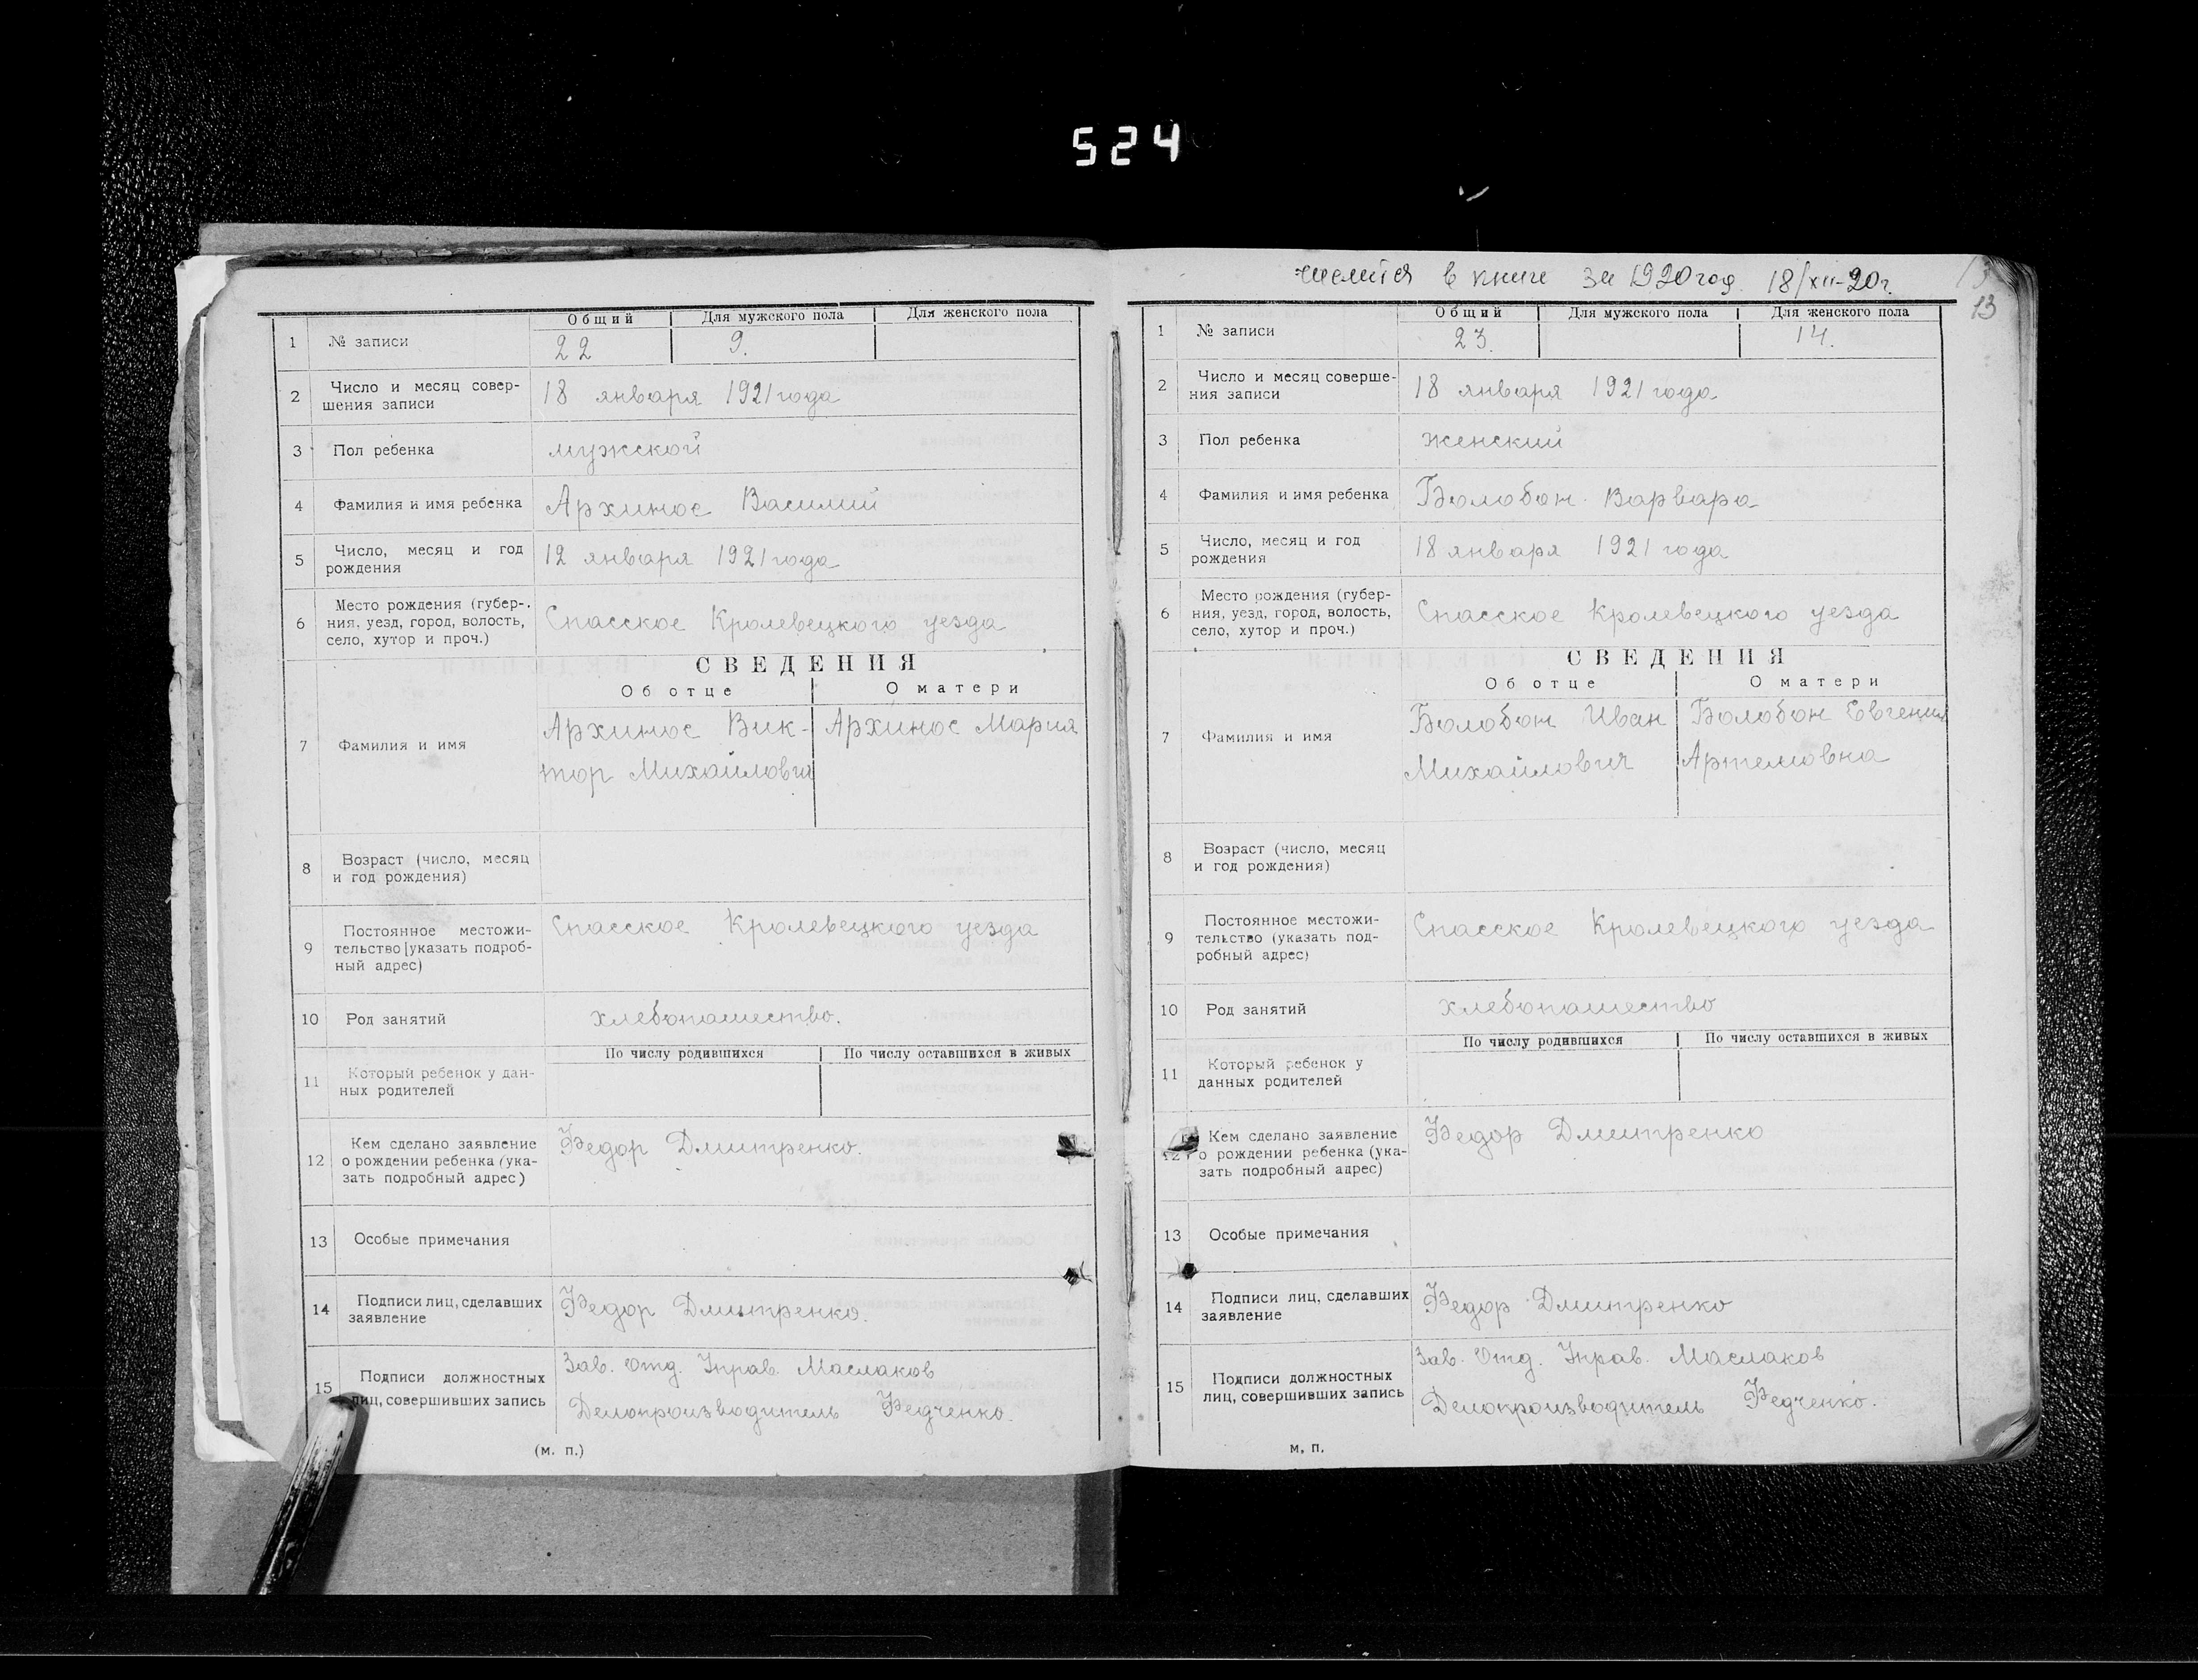 524
числится в книге за 1920 год. 18/XII-20г.
13
13
Общий Для мужского пола Для женского пола
1 № записи 22 9.
2 Число и месяц совер-
шения записи 18 января 1921 года
3 Пол ребенка мужской
4 Фамилия и имя ребенка Архипос Василий
5 Число, месяц и год
рождения 12 января 1921 года
6 Место рождения (губер-
ния, уезд, город, волость,
село, хутор и проч.) Спасское Кролевецкого уезда
СВЕДЕНИЯ
Об отце О матери
7 Фамилия и имя Архипос Вик- Архипос Мария
тор Михайлович
8 Возраст (число, месяц
и год рождения)
9 Постоянное местожи-
тельство [указать подроб-
ный адрес) Спасское Кролевецкого уезда
10 Род занятий хлебопашество.
По числу родившихся По числу оставшихся в живых
11 Который ребенок у дан-
ных родителей
12 Кем сделано заявление
о рождении ребенка (ука-
зать подробный адрес) Федор Дмитренко.
13 Особые примечания
14 Подписи лиц, сделавших
заявление Федор Дмитренко.
15 Подписи должностных
лиц, совершивших запись Зав. Отд. Управ. Маслаков
Делопроизводитель Федченко.
(м. п.)
Общий Для мужского пола Для женского пола
1 № записи 23. 14.
2 Число и месяц соверше-
ния записи 18 января 1921 года
3 Пол ребенка женский
4 Фамилия и имя ребенка Болобон Варвара
5 Число, месяц и год
рождения 18 января 1921 года
6 Место рождения (губер-
ния, уезд, город, волость,
село, хутор и проч.) Спасское Кролевецкого уезда
СВЕДЕНИЯ
Об отце О матери
7 Фамилия и имя Болобон Иван Болобон Евгения
Михайлович Артемовна
8 Возраст (число, месяц
и год рождения)
9 Постоянное местожи-
тельство (указать под-
робный адрес) Спасское Кролевецкого уезда
10 Род занятий хлебопашество
По числу родившихся По числу оставшихся в живых
11 Который ребенок у
данных родителей
12 Кем сделано заявление
о рождении ребенка (ука-
зать подробный адрес) Федор Дмитренко
13 Особые примечания
14 Подписи лиц, сделавших
заявление Федор Дмитренко
15 Подписи должностных
лиц, совершивших запись Зав. Отд. Управ. Маслаков
Делопроизводитель Федченко.
м. п.